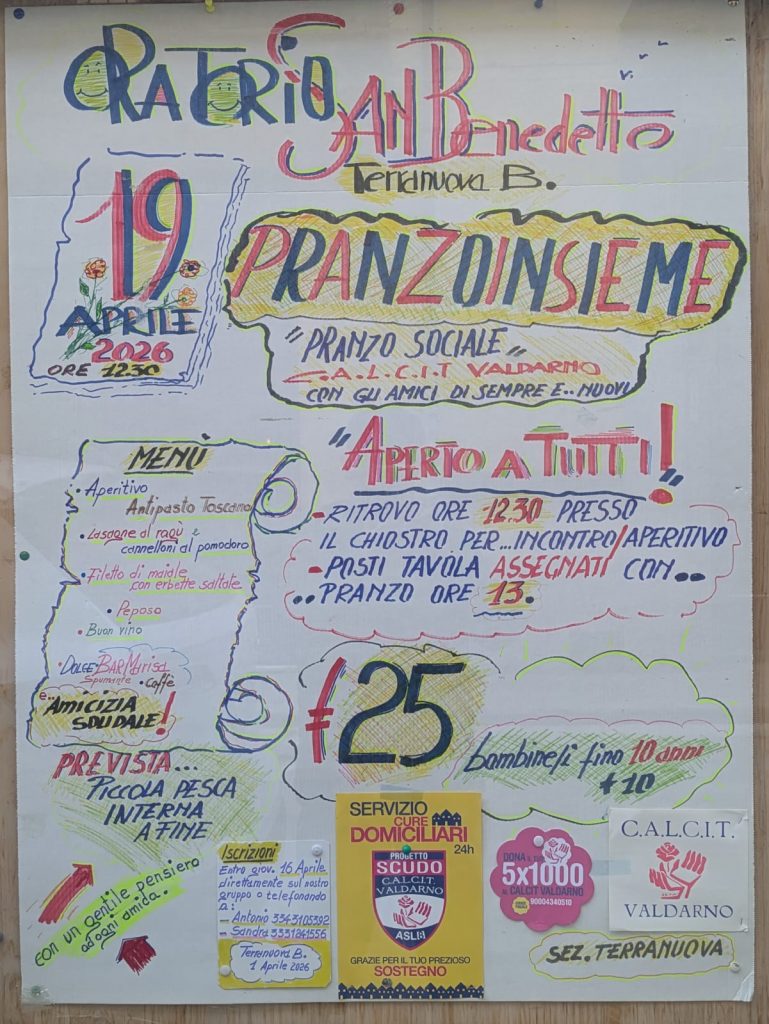 ORATORIO SAN BENEDETTO
Terranuova B.
19
APRILE
2026
ORE 12.30
PRANZOINSIEME
"PRANZO SOCIALE"
C.A.L.C.I.T VALDARNO
CON GLI AMICI DI SEMPRE E.. NUOVI
"APERTO A TUTTI!"
- RITROVO ORE 12.30 PRESSO
IL CHIOSTRO PER... INCONTRO/APERITIVO
- POSTI TAVOLA ASSEGNATI CON..
.. PRANZO ORE 13.
MENÙ
• Aperitivo
Antipasto Toscano
• Lasagne al ragù e
cannelloni al pomodoro
• Filetto di maiale
con erbette saltate
• Peposo
• Buon vino
• DOLCE BAR Marisa
Spumante • Caffè
e..
AMICIZIA
SOLIDALE!
€ 25
bambine/i fino 10 anni
€ 10
PREVISTA...
PICCOLA PESCA
INTERNA
A FINE
con un gentile pensiero
ad ogni amida.
Iscrizioni
Entro giov. 16 Aprile
direttamente sul nostro
gruppo o telefonando
a:
- Antonio 3343105392
- Sandra 3331241556
Terranuova B.
1 Aprile 2026
SERVIZIO
CURE
DOMICILIARI
24h
PROGETTO
SCUDO
C.A.L.C.I.T.
VALDARNO
ASL8
GRAZIE PER IL TUO PREZIOSO
SOSTEGNO
DONA IL TUO
5x1000
AL CALCIT VALDARNO
CODICE FISCALE
90004340510
C.A.L.C.I.T.
VALDARNO
SEZ. TERRANUOVA